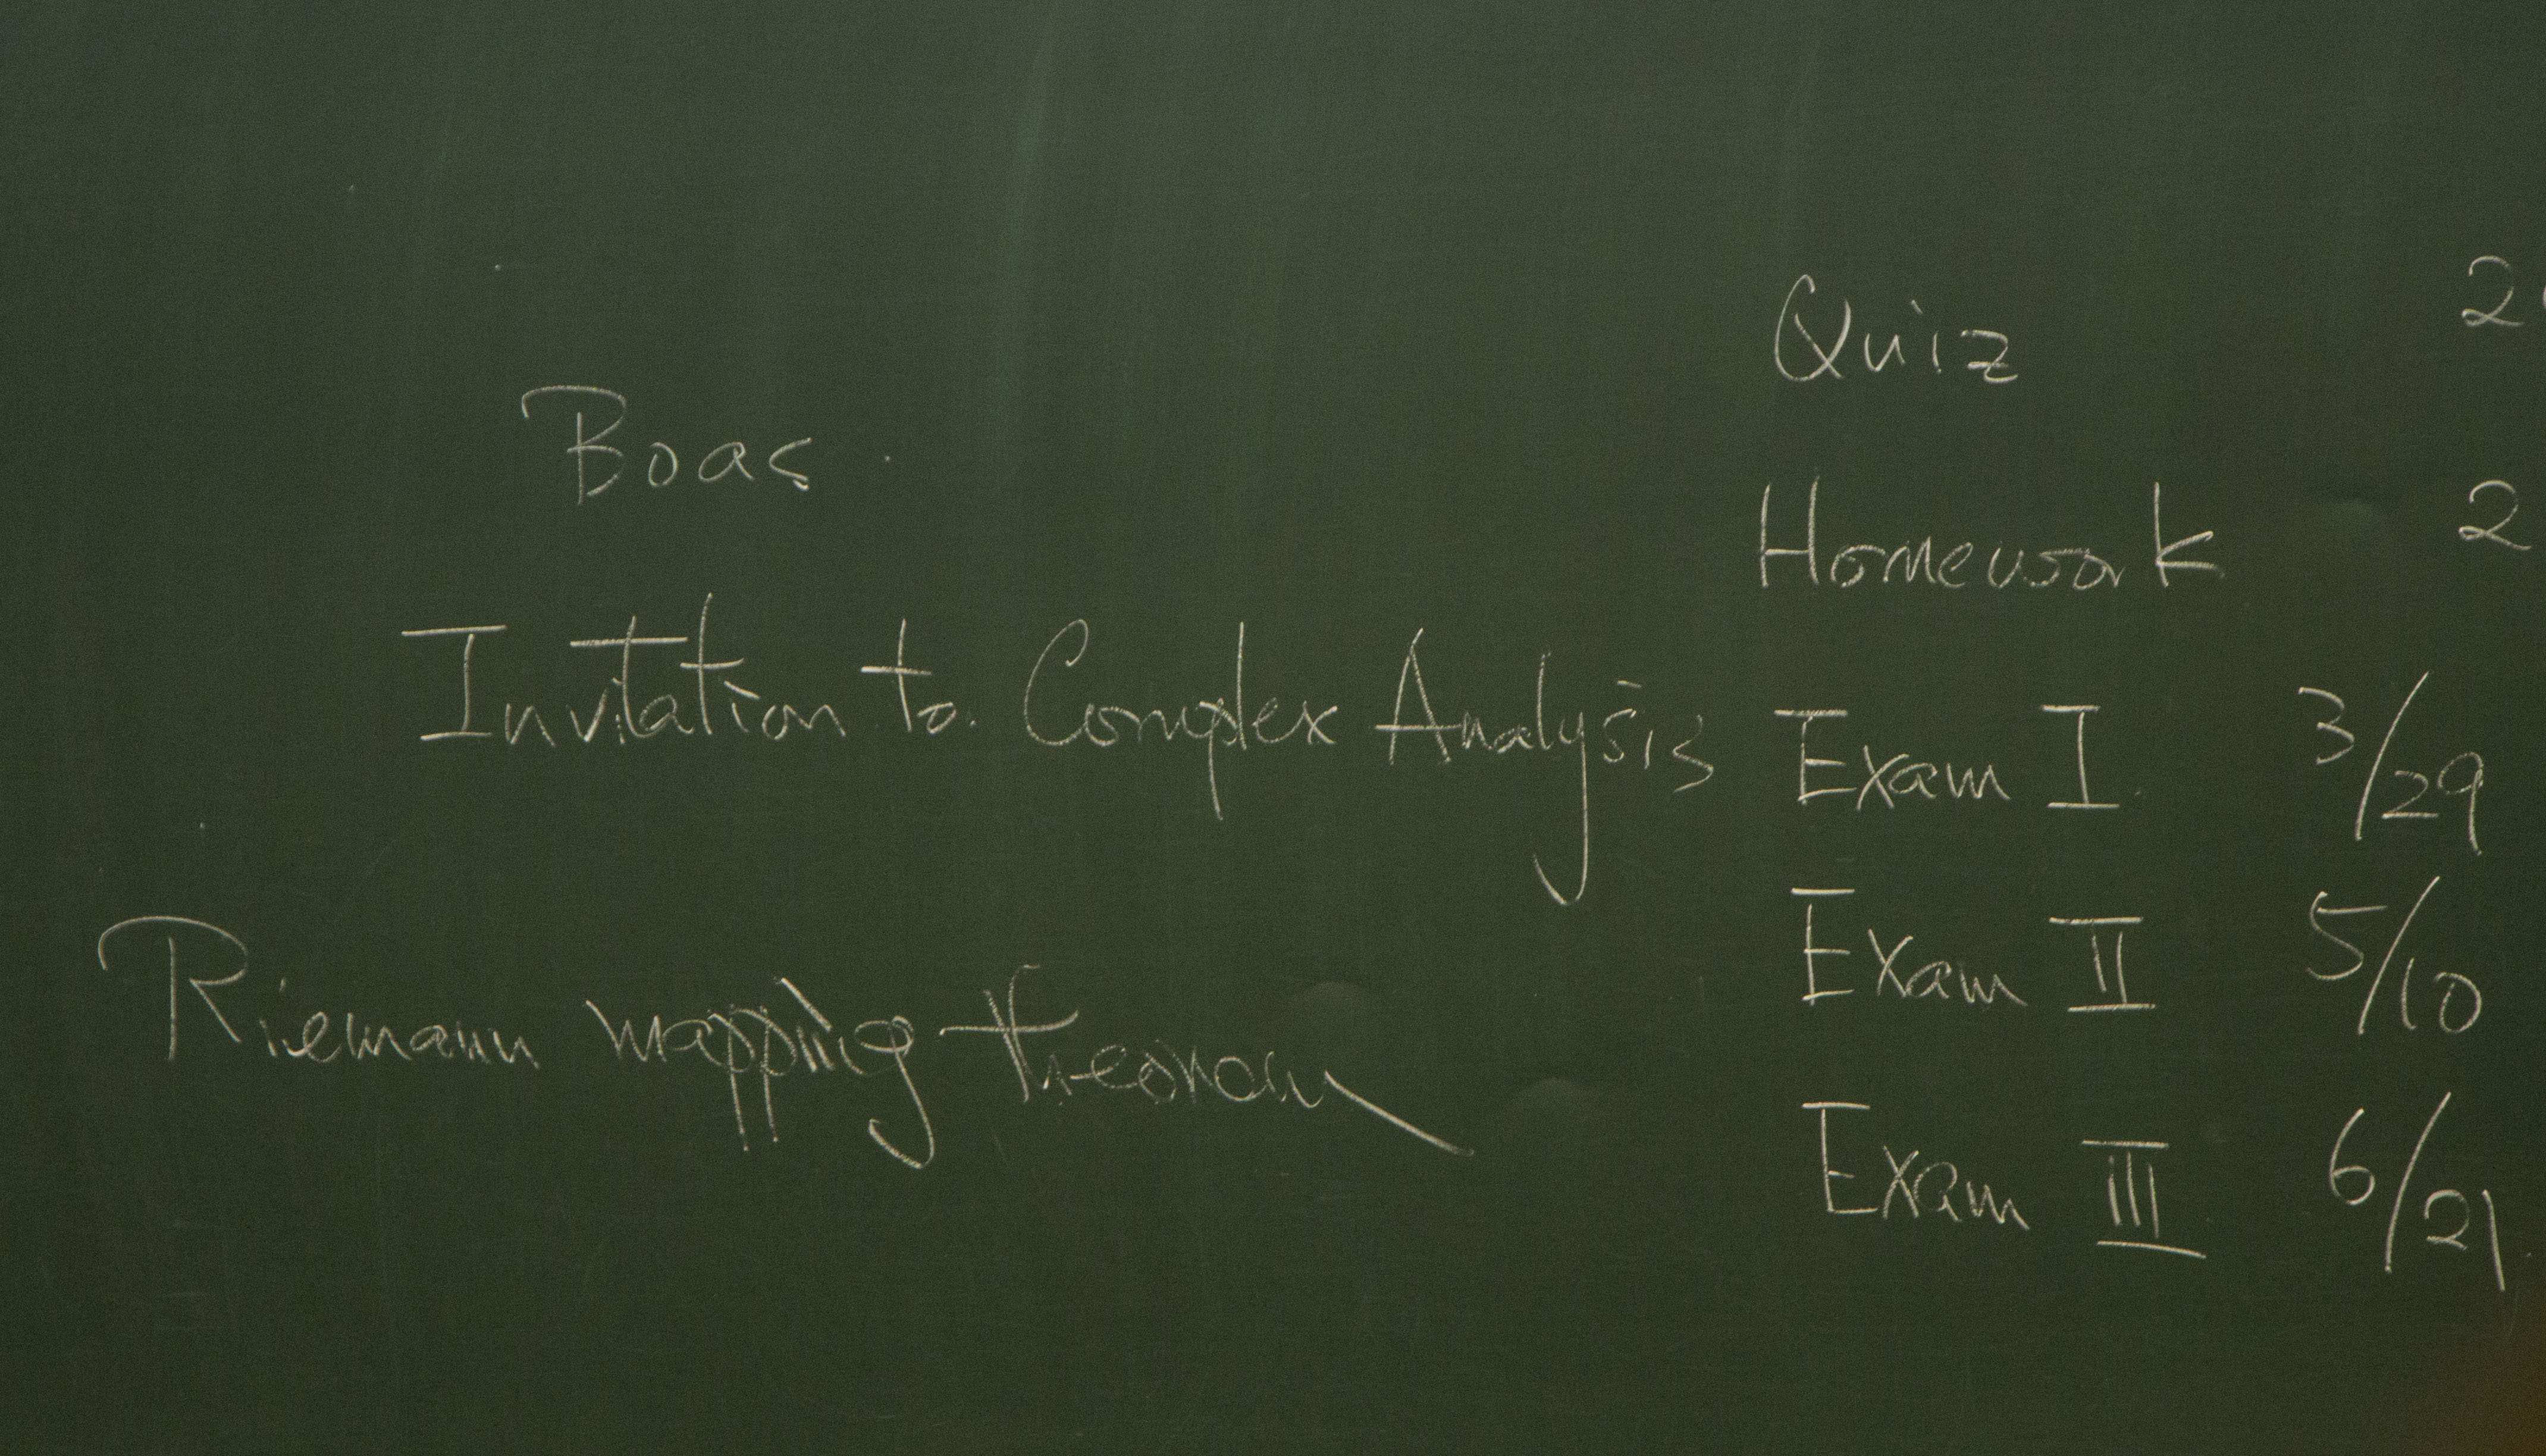 Boas.
Invitation to Complex Analysis
Riemann mapping theorem
Quiz 2
Homework 2
Exam I 3/29
Exam II 5/10
Exam III 6/21